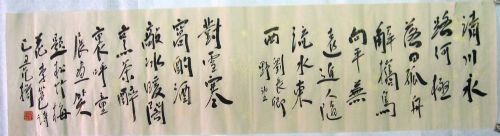 清川永
路何極
落日孤舟
解攜鳥
向平蕪
遠近人隨
流水東
西 劉長卿
對雪寒
窗酌酒
敲冰暖閣
烹茶醉
裏呼童
展畫笑
題松竹梅
花